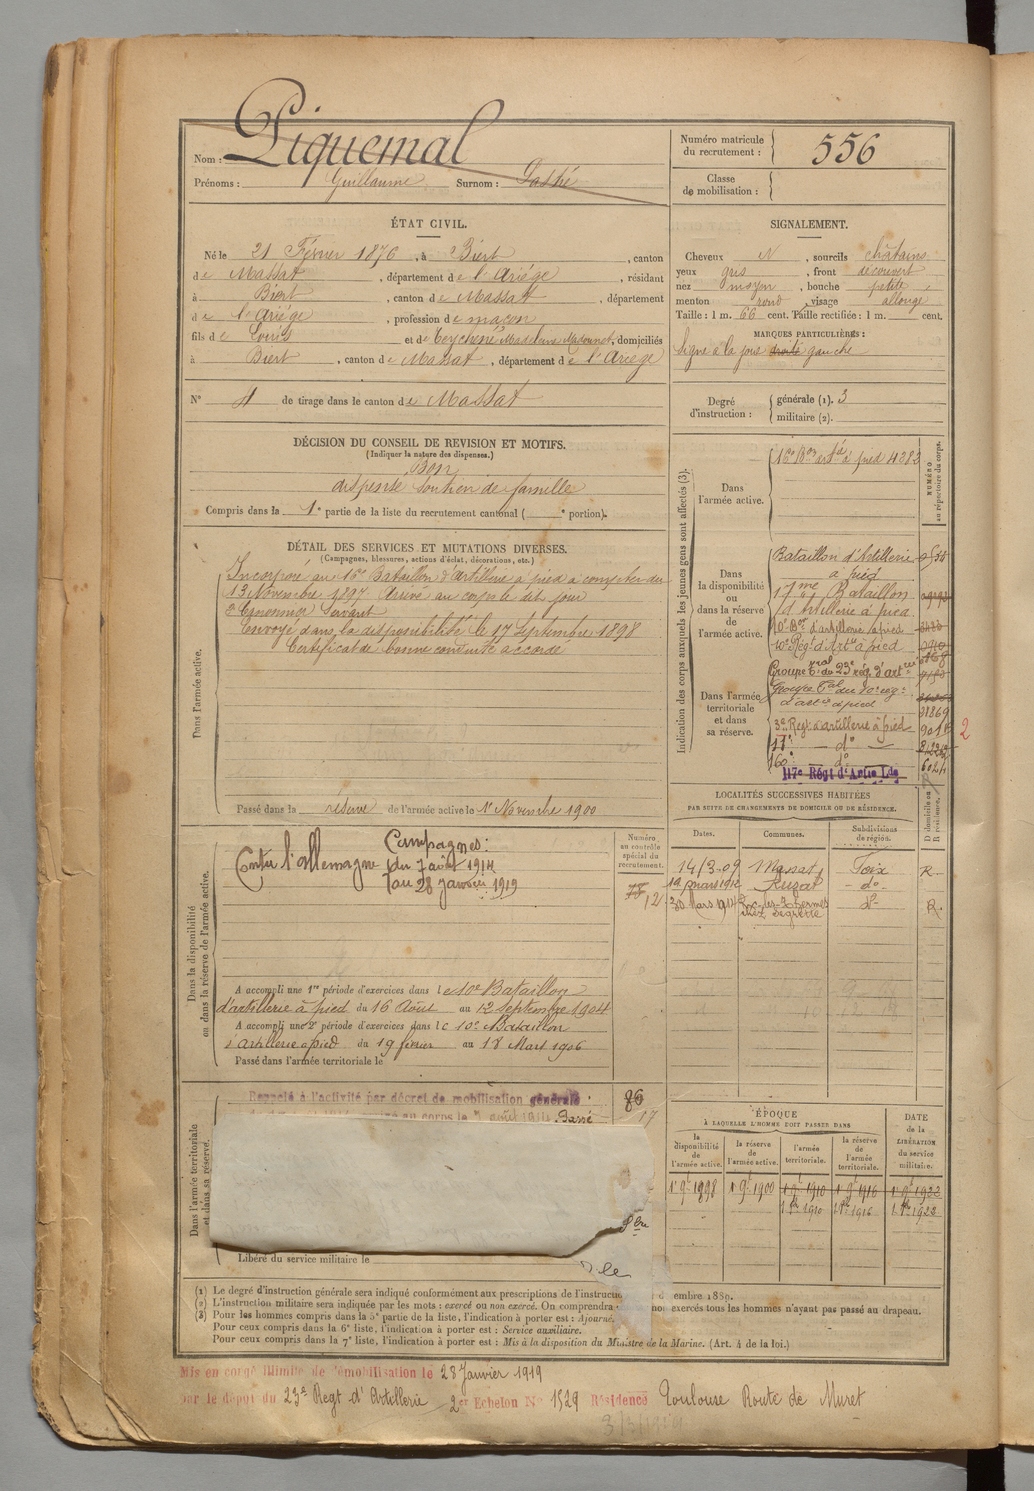 Nom : Piquemal
Prénoms : Guillaume Surnom :
Numéro matricule du recrutement : 556
Classe de mobilisation :
ÉTAT CIVIL.
Né le 21 Février 1876, à Biert, canton
de Massat, département de l'Ariége, résidant
à Biert, canton de Massat, département
de l'Ariége, profession de maçon
fils de Louis et de Teychené Madeleine, domiciliés
à Biert, canton de Massat, département de l'Ariége
N° de tirage dans le canton de Massat
SIGNALEMENT.
Cheveux N, sourcils châtains
yeux gris, front découvert
nez moyen, bouche petite
menton rond, visage allongé
Taille : 1 m. 66 cent. Taille rectifiée : 1 m. cent.
MARQUES PARTICULIÈRES :
Signe à la joue droite gauche
Degré d'instruction : générale (1). 3
militaire (2).
DÉCISION DU CONSEIL DE REVISION ET MOTIFS.
(Indiquer la nature des dispenses.)
Bon
dispensé soutien de famille
Compris dans la 1e partie de la liste du recrutement cantonal ( e portion).
DÉTAIL DES SERVICES ET MUTATIONS DIVERSES.
(Campagnes, blessures, actions d'éclat, décorations, etc.)
Dans l'armée active.
Incorporé au 16e Bataillon d'artillerie à pied à compter du
13 Novembre 1897 Arrivé au corps le dit jour
2e Canonnier Servant
Envoyé dans la disponibilité le 17 Septembre 1898
Certificat de bonne conduite accordé
Passé dans la réserve de l'armée active le 1er Novembre 1900
Indication des corps auxquels les jeunes gens sont affectés (3).
NUMÉRO au répertoire du corps.
Dans l'armée active.
16e Bon artie à pied 4282
Dans la disponibilité ou dans la réserve de l'armée active.
Bataillon d'Artillerie
à pied
17me Bataillon
d'Artillerie à pied
10e Bon d'artillerie à pied
10e Régt d'Artie à pied
Dans l'armée territoriale et dans sa réserve.
Groupe Tral du 23e rég. d'artie
Groupe Tal du 10e rég.
d'artie à pied 31869
3e Régt d'artillerie à pied
11e — do —
160e do
117e Régt d'Artie Lde
2
LOCALITÉS SUCCESSIVES HABITÉES
PAR SUITE DE CHANGEMENTS DE DOMICILE OU DE RÉSIDENCE.
D domicile ou R résidence.
Dates. Communes. Subdivisions de région.
14/3-09 Massat Foix R
1er mars 1912 - do -
30 Mars 1914 do R
Dans la disponibilité ou dans la réserve de l'armée active.
Numéro au contrôle spécial du recrutement.
12
Campagnes:
Contre l'Allemagne du 7 août 1914
au 28 janvier 1919
A accompli une 1re période d'exercices dans le 10e Bataillon
d'artillerie à pied du 16 Août au 12 Septembre 1904
A accompli une 2e période d'exercices dans le 10e Bataillon
d'artillerie à pied du 19 février au 18 Mart 1906
Passé dans l'armée territoriale le
Dans l'armée territoriale et dans sa réserve.
Rappelé à l'activité par décret de mobilisation générale
au corps le 7 août 1914. Passé
86
17
Libéré du service militaire le
ÉPOQUE
À LAQUELLE L'HOMME DOIT PASSER DANS
DATE de la LIBÉRATION du service militaire.
la disponibilité de l'armée active. la réserve de l'armée active. l'armée territoriale. la réserve de l'armée territoriale.
1er 9bre 1898 1er 9bre 1900 1er 9bre 1910 1er 9bre 1916 1er 9bre 1922
1er 8bre 1910 1er 8bre 1916 1er 8bre 1922
(1) Le degré d'instruction générale sera indiqué conformément aux prescriptions de l'instruction embre 1889.
(2) L'instruction militaire sera indiquée par les mots : exercé ou non exercé. On comprendra exercés tous les hommes n'ayant pas passé au drapeau.
(3) Pour les hommes compris dans la 5e partie de la liste, l'indication à porter est : Ajourné.
Pour ceux compris dans la 6e liste, l'indication à porter est : Service auxiliaire.
Pour ceux compris dans la 7e liste, l'indication à porter est : Mis à la disposition du Ministre de la Marine. (Art. 4 de la loi.)
Mis en congé illimité de démobilisation le 28 Janvier 1919
par le dépôt du 23e Régt d'Artillerie 2e Echelon N° 1529 Résidence Toulouse Route de Muret